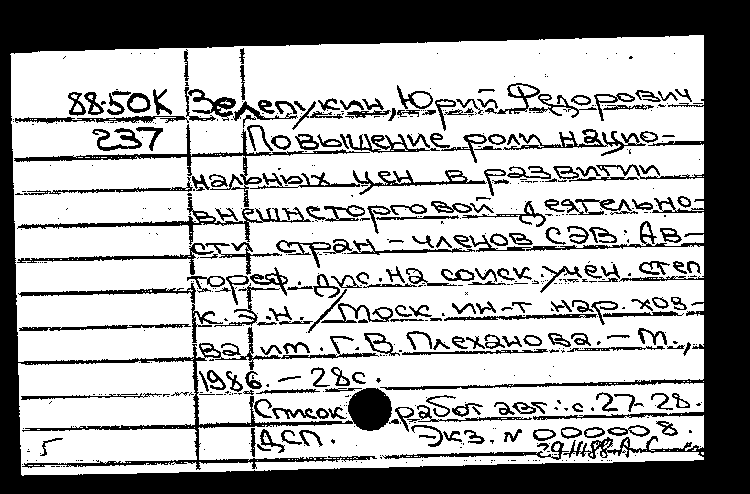 88-50К Зелепукин, Юрий Федорович.
237 Повышение роли нацио-
нальных цен в развитии
внешнеторговой деятельно-
сти стран - членов СЭВ: Ав-
тореф. дис. на соиск. учен. степ
к.э.н. / Моск. ин-т нар. хоз-
ва им. Г.В. Плеханова. - М.,
1986. - 28с.
Список работ авт.: с. 27-28.
5 ДСП. Экз. № 000008.
29.III.88